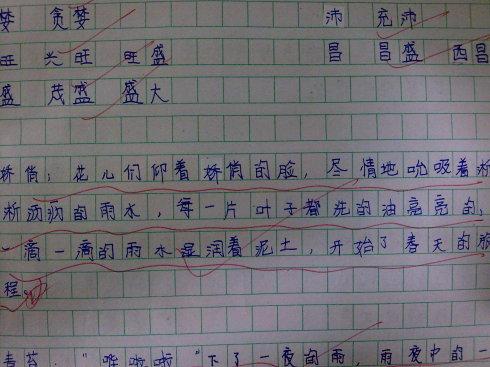 梦 贪梦 沛 充沛
旺 兴旺 旺盛 昌 昌盛 西昌
盛 茂盛 盛大
娇俏：花儿们仰着娇俏的脸，尽情地吮吸着淅
淅沥沥的雨水，每一片叶子都洗的油亮亮的，
一滴一滴的雨水湿润着泥土，开始了春天的旅
程。
青苔："哗啦啦"下了一夜的雨，雨夜中的一